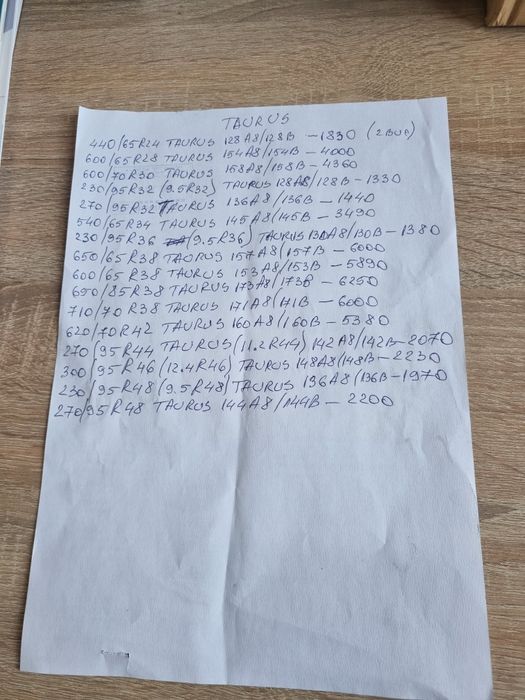 TAURUS
440/65R24 TAURUS 128A8/128B - 1830 (2BUC)
600/65R28 TAURUS 154A8/154B - 4000
600/70R30 TAURUS 158A8/158B - 4360
230/95R32 (9.5R32) TAURUS 128A8/128B - 1330
270/95R32 TAURUS 136A8/136B - 1440
540/65R34 TAURUS 145A8/145B - 3490
230/95R36 (9.5R36) TAURUS 130A8/130B - 1380
650/65R38 TAURUS 157A8/157B - 6000
600/65R38 TAURUS 153A8/153B - 5890
650/85R38 TAURUS 173A8/173B - 6250
710/70R38 TAURUS 171A8/171B - 6000
620/70R42 TAURUS 160A8/160B - 5380
270/95R44 TAURUS (11.2R44) 142A8/142B - 2070
300/95R46 (12.4R46) TAURUS 148A8/148B - 2230
230/95R48 (9.5R48) TAURUS 136A8/136B - 1970
270/95R48 TAURUS 144A8/144B - 2200